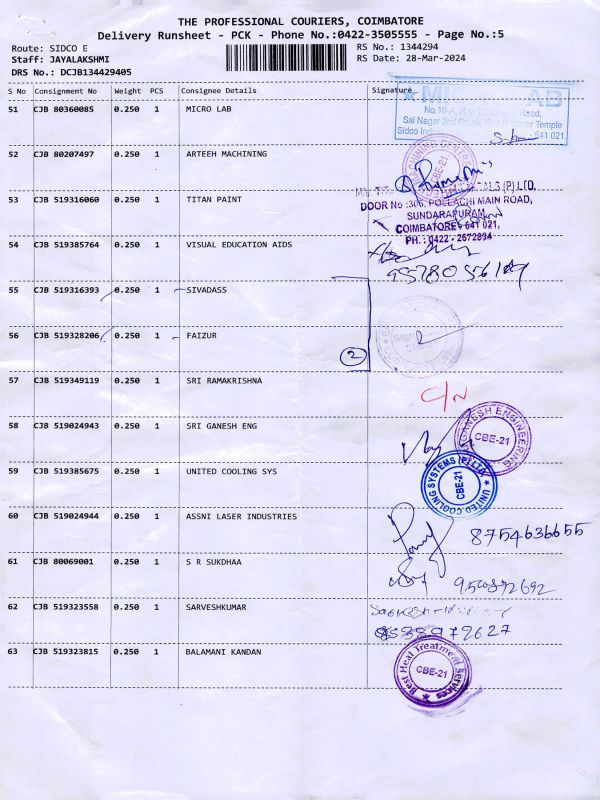 THE PROFESSIONAL COURIERS, COIMBATORE
Delivery Runsheet - PCK - Phone No.:0422-3505555 - Page No.:5
Route: SIDCO E
RS No.: 1344294
Staff: JAYALAKSHMI
RS Date: 28-Mar-2024
DRS No.: DCJB134429405
S No Consignment No Weight PCS Consignee Details Signature
51 CJB 80360085 0.250 1 MICRO LAB
LAB
No.10-A, Road,
Sai Nagar 2nd Temple
Sidco 641 021.
52 CJB 80207497 0.250 1 ARTEEH MACHINING
CBE-21
53 CJB 519316060 0.250 1 TITAN PAINT
(P) LTD.
DOOR No :306, POLLACHI MAIN ROAD,
SUNDARAPURAM,
COIMBATORE - 641 021.
PH. : 0422 - 2672894
54 CJB 519385764 0.250 1 VISUAL EDUCATION AIDS
55 CJB 519316393 0.250 1 SIVADASS
56 CJB 519328206 0.250 1 FAIZUR
2
57 CJB 519349119 0.250 1 SRI RAMAKRISHNA
C/N
58 CJB 519024943 0.250 1 SRI GANESH ENG
GANESH ENGINEERING
CBE-21
59 CJB 519385675 0.250 1 UNITED COOLING SYS
UNITED COOLING SYSTEMS (P) LTD
CBE-21
60 CJB 519024944 0.250 1 ASSNI LASER INDUSTRIES
8754636655
61 CJB 80069001 0.250 1 S R SUKDHAA
62 CJB 519323558 0.250 1 SARVESHKUMAR
63 CJB 519323815 0.250 1 BALAMANI KANDAN
Best Heat Treatment Services
CBE-21